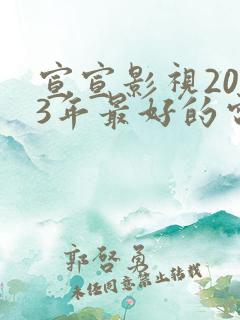 宣宣影視20
3年最好的
郭啓勇
未经同意禁止转载